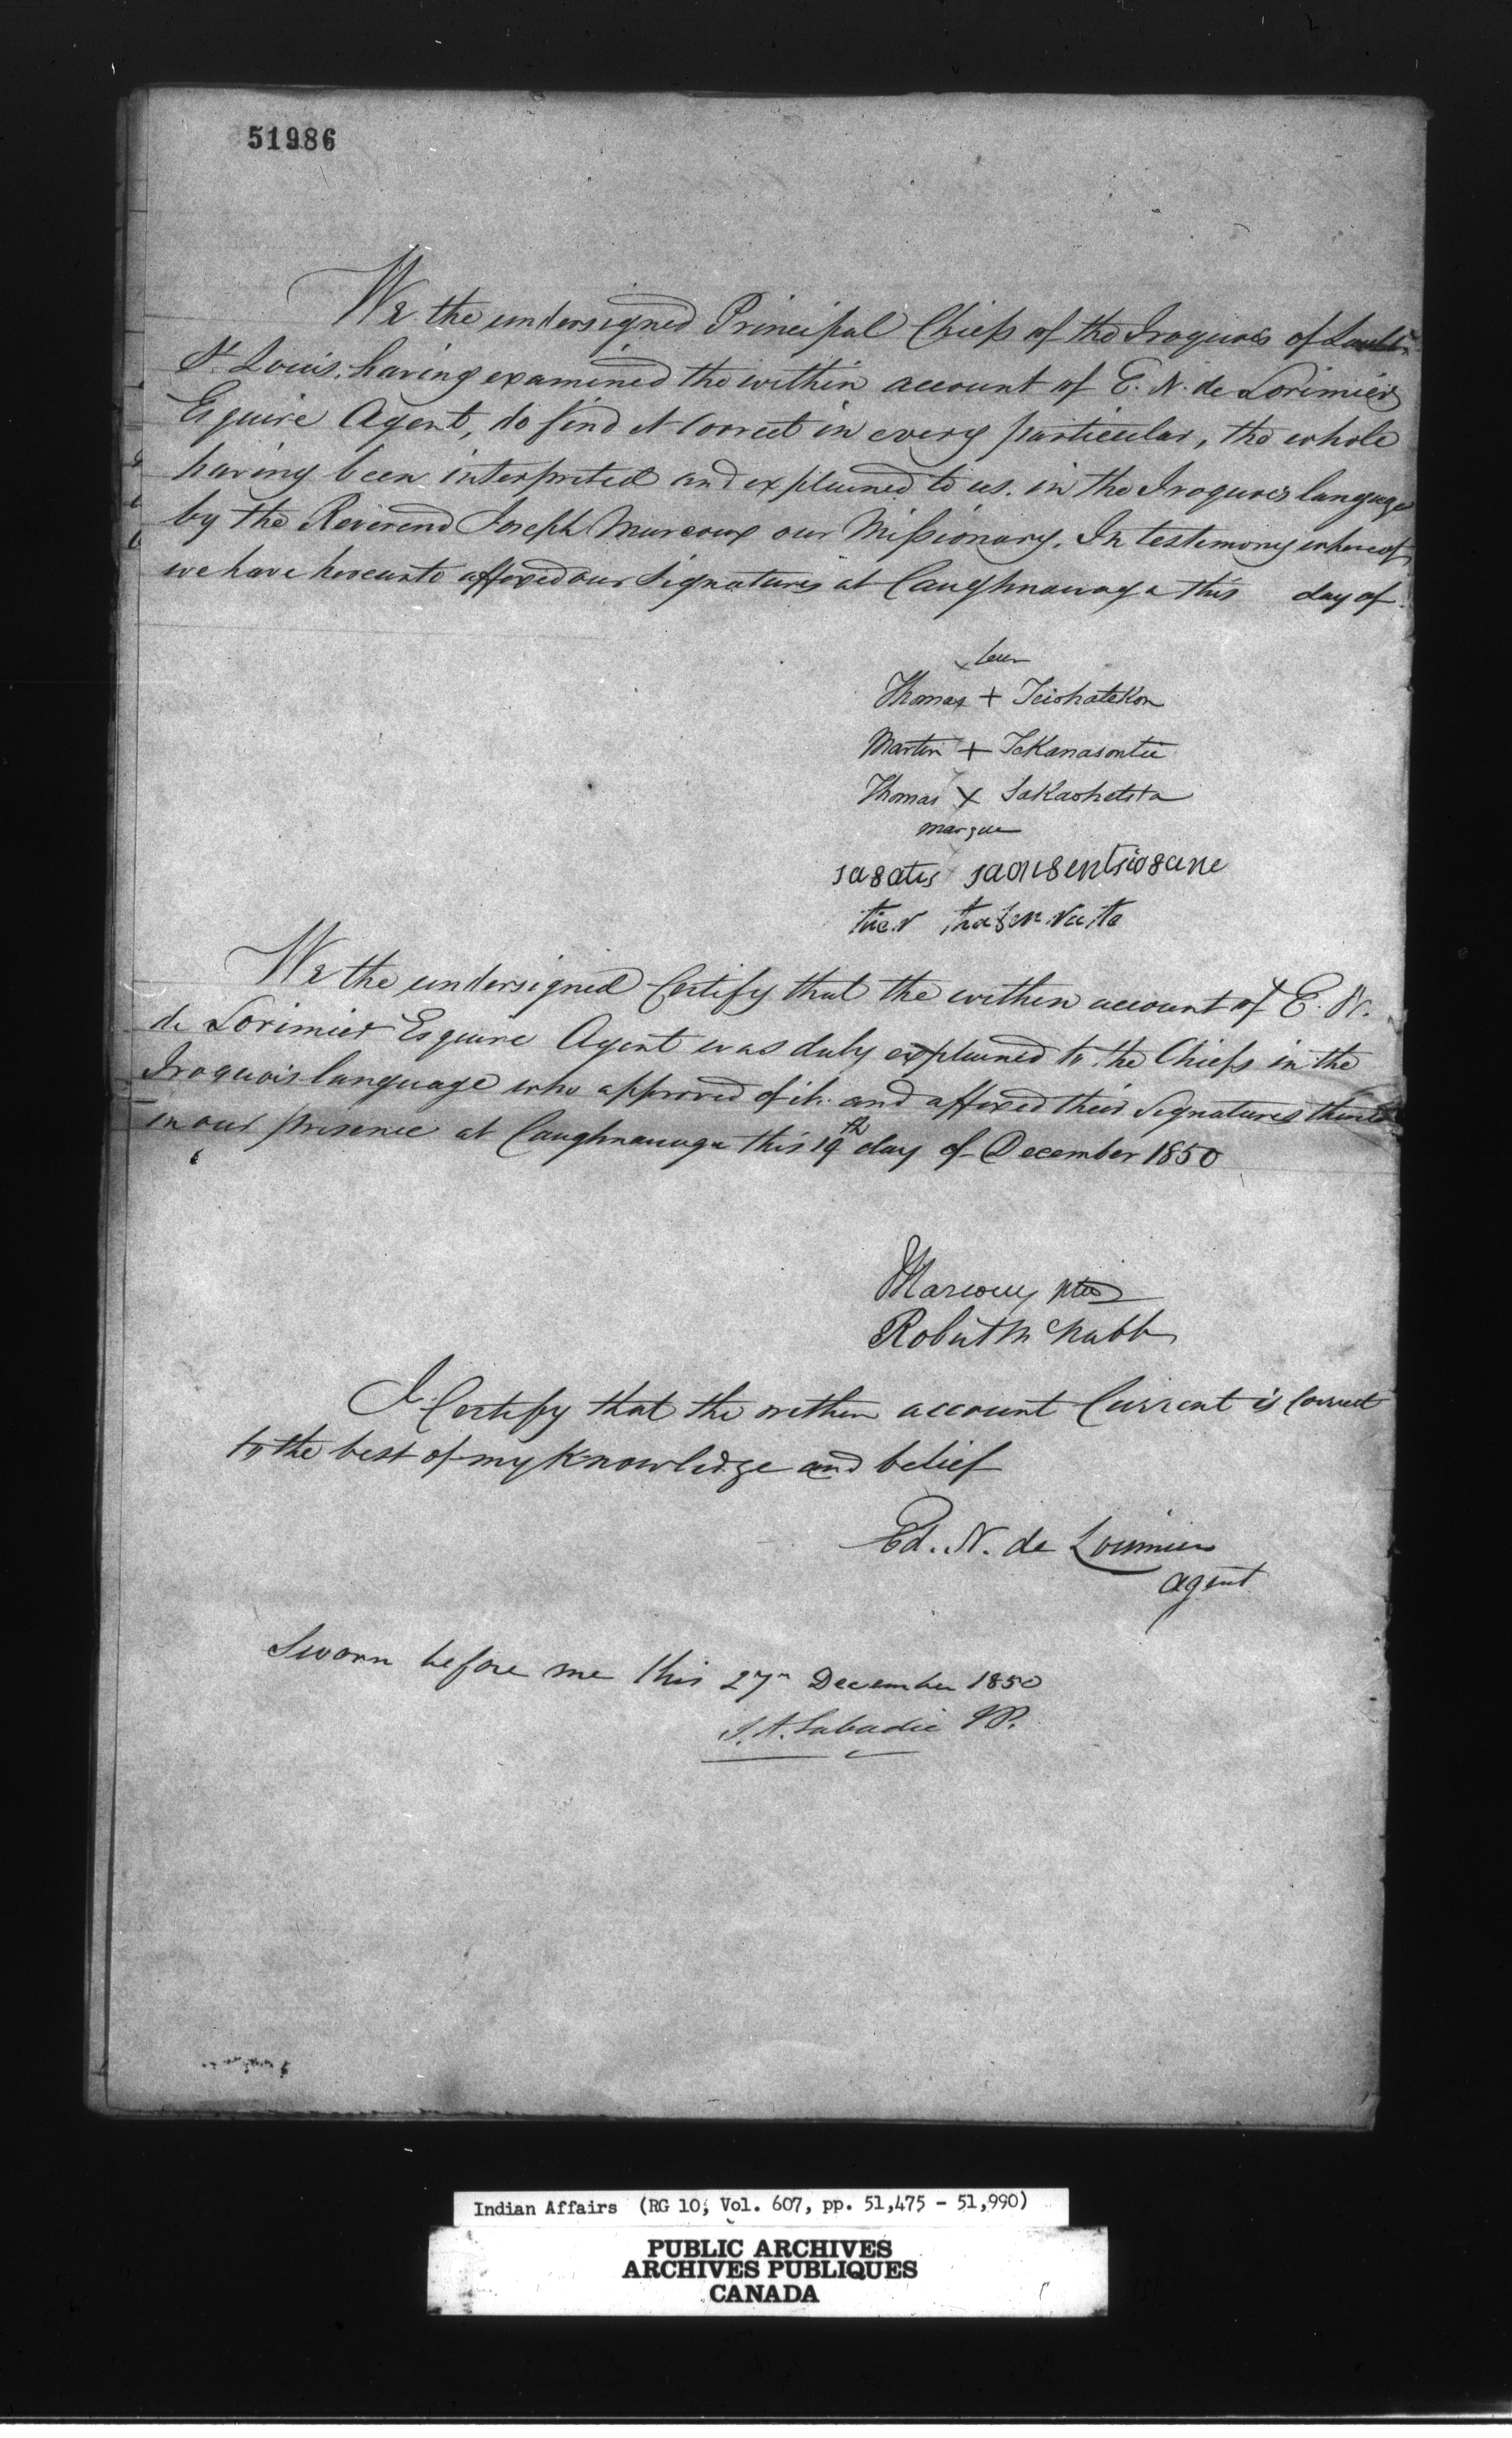 51986
We the undersigned Principal Chiefs of the Iroquois of Sault
St. Louis, having examined the within account of E. N. de Lorimier
Esquire Agent, do find it correct in every particular, the whole
having been interpreted and explained to us, in the Iroquois language
by the Reverend Joseph Marcoux our Missionary. In testimony whereof
we have hereunto affixed our Signatures at Caughnawaga this day of
leur
Thomas + Teiohatekon
Martin + Tekanasontie
Thomas X Sakaohetsta
marque
sa8atis saon8entsio8ane
We the undersigned Certify that the within account of E. N.
de Lorimier Esquire Agent was duly explained to the Chiefs in the
Iroquois language who approved of it and affixed their Signatures thereto
in our presence at Caughnawaga this 19th day of December 1850
Marcoux Ptre
Robert McNabb
I Certify that the within account Current is Correct
to the best of my Knowledge and belief
Ed. N. de Lorimier
agent
Sworn before me this 27th December 1850
J. A. Labadie JP.
Indian Affairs (RG 10, Vol. 607, pp. 51,475 - 51,990)
PUBLIC ARCHIVES
ARCHIVES PUBLIQUES
CANADA